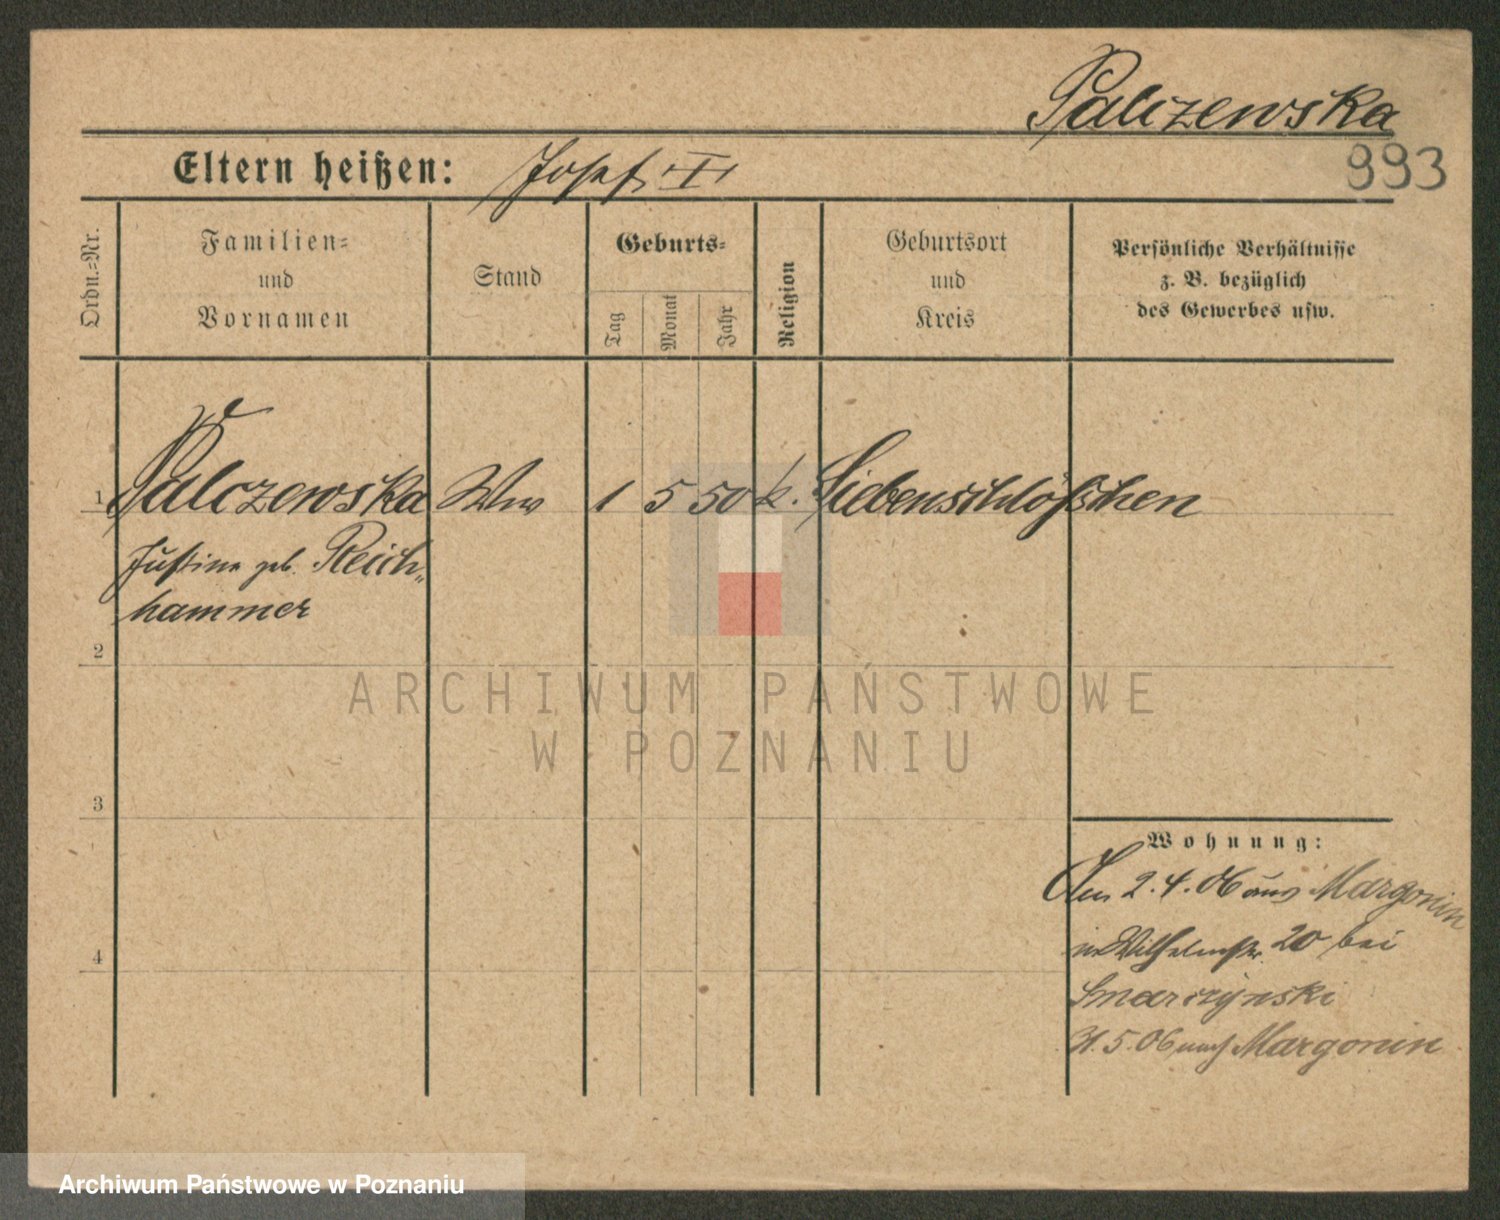 Palczewska
993
Eltern heißen: Josef I
Ordn.-Nr.
Familien-
und
Vornamen
Stand
Geburts-
Tag
Monat
Jahr
Religion
Geburtsort
und
Kreis
Persönliche Verhältnisse
z. B. bezüglich
des Gewerbes usw.
1 Palczewska Ww 1 5 50 k. Siebenschlößchen
Justine geb. Reich-
hammer
2
ARCHIWUM PAŃSTWOWE
W POZNANIU
3
Wohnung:
2.4.06 aus Margonin
4
in Wilhelmstr. 20 bei
Smarczynski
31.5.06 nach Margonin
Archiwum Państwowe w Poznaniu